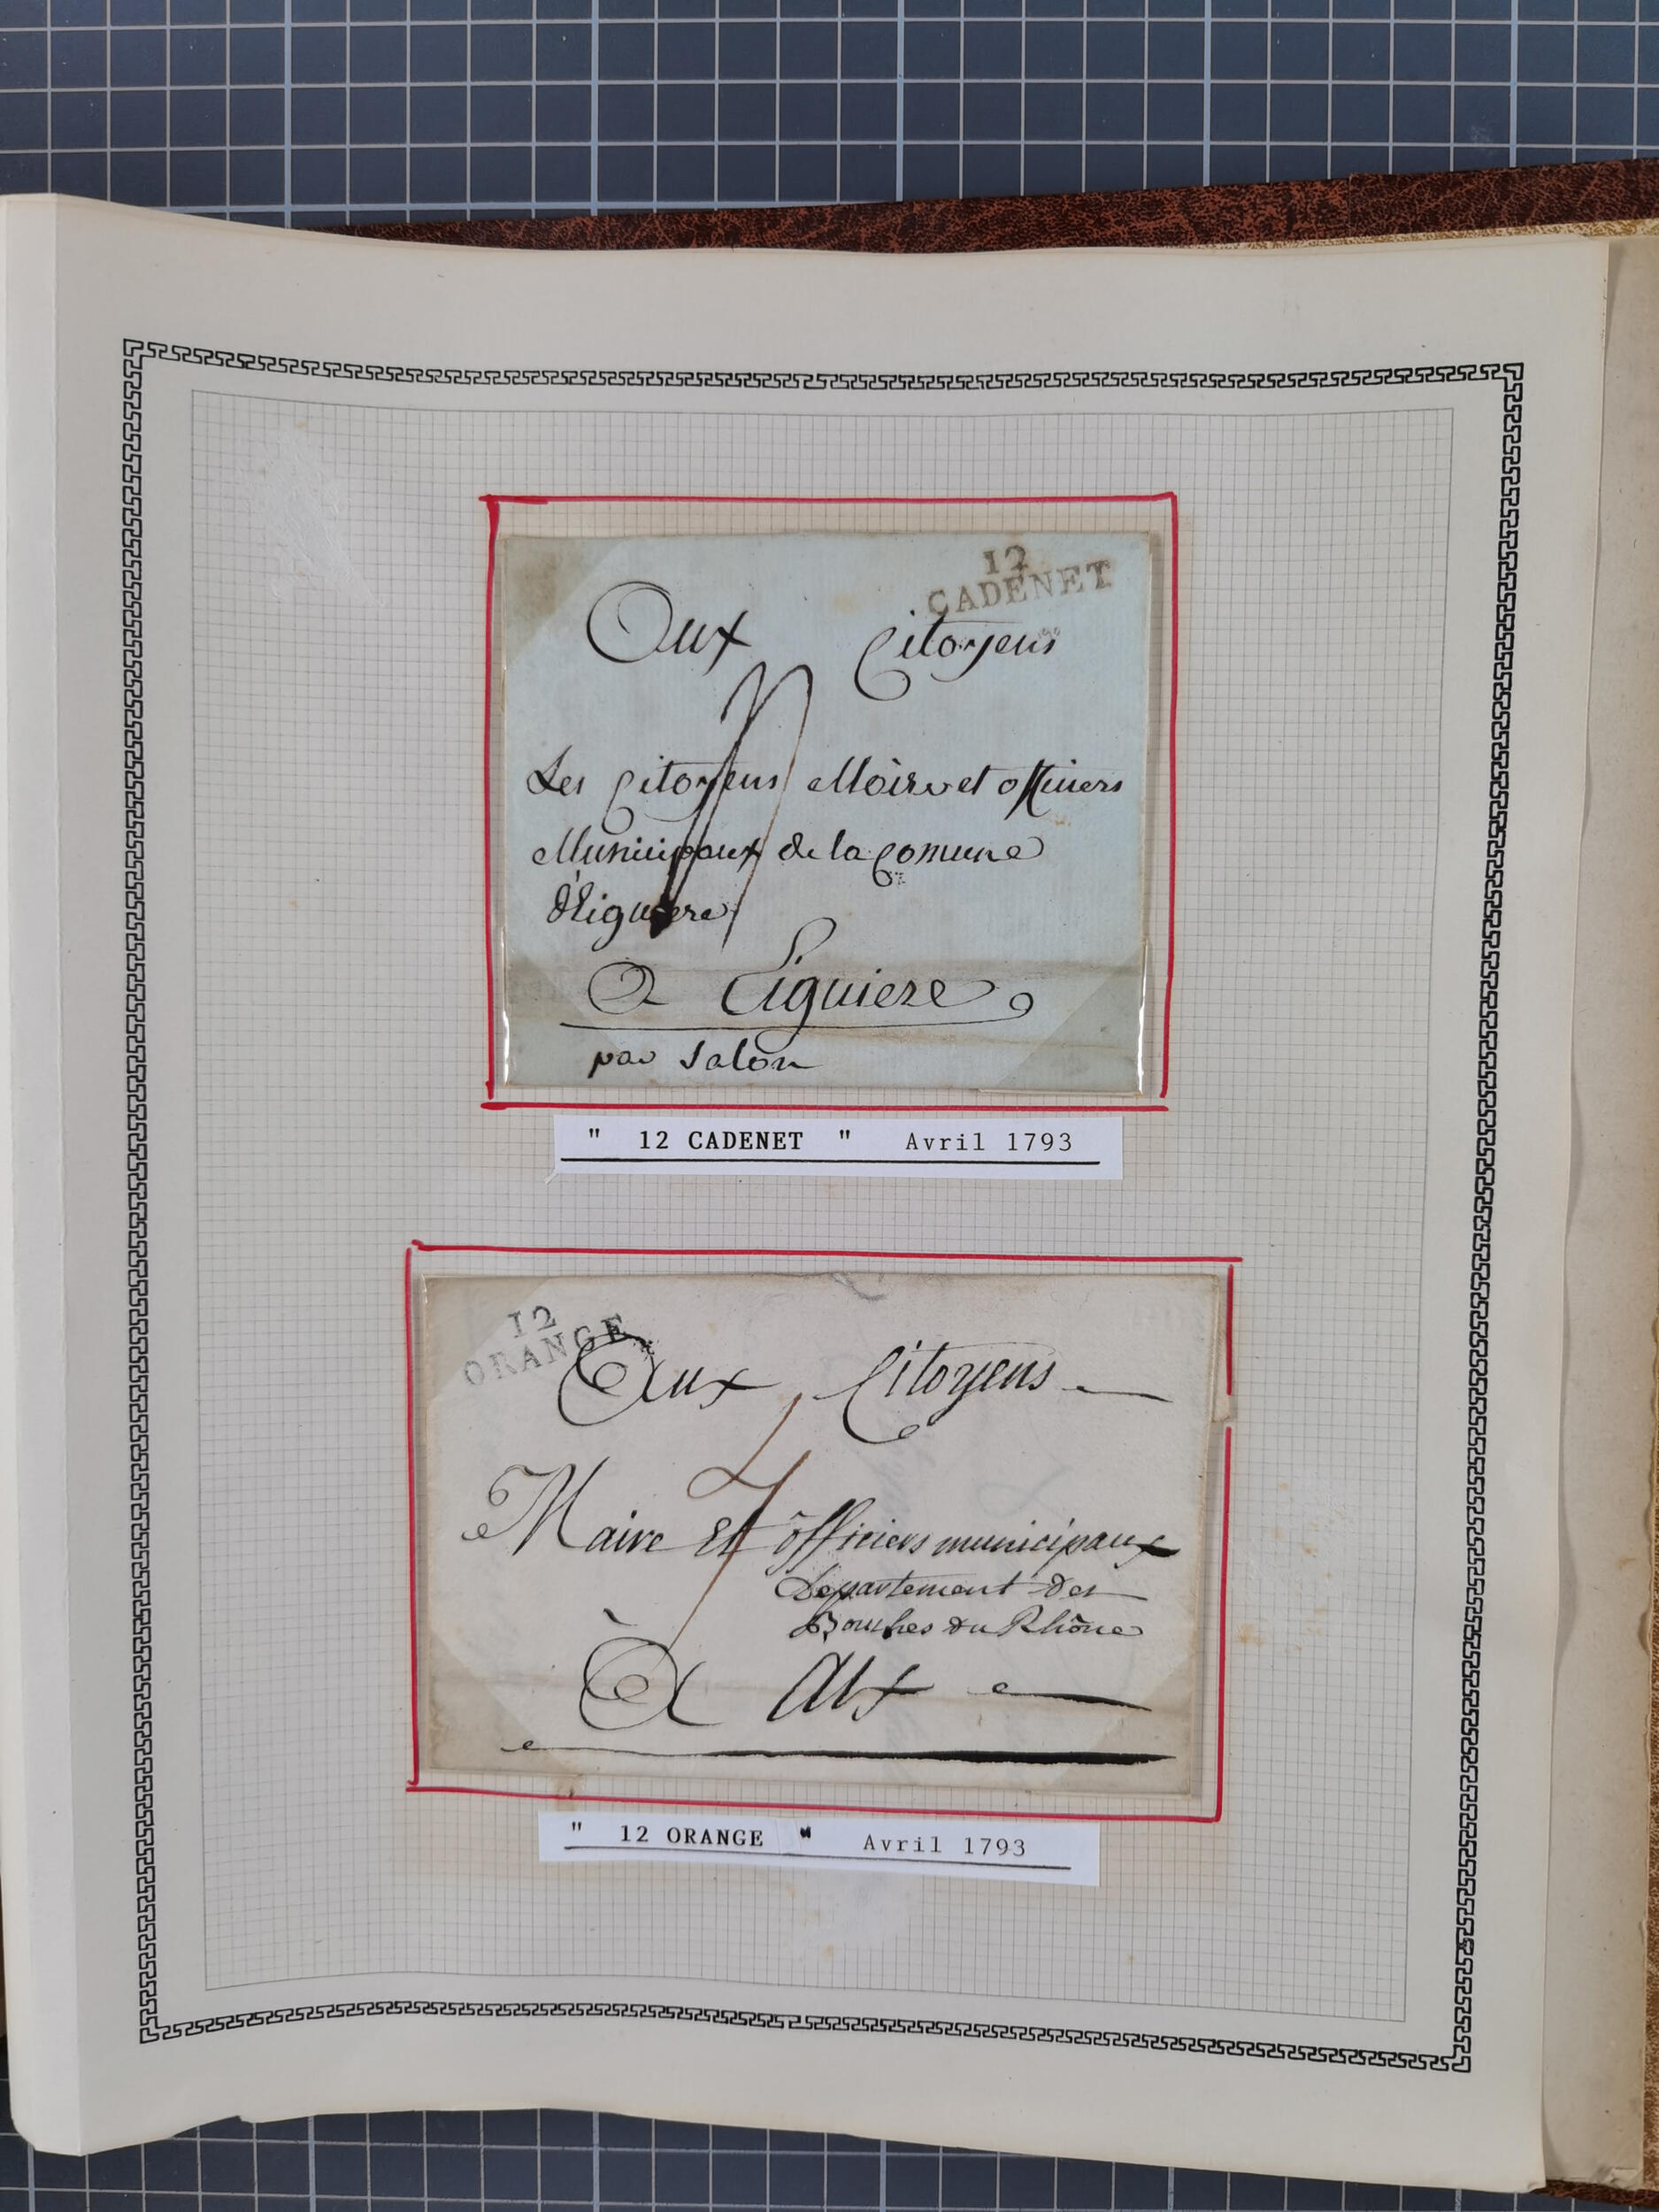 12
CADENET
Aux Citoyens
Les Citoyens Maire et officiers
Municipaux de la Comune
d'Eiguiere
A Eiguiere
par Salon
" 12 CADENET " Avril 1793
12
ORANGE
Aux Citoyens
Maire Et officiers municipaux
Departement des
Bouches du Rhône
À Aix
" 12 ORANGE " Avril 1793